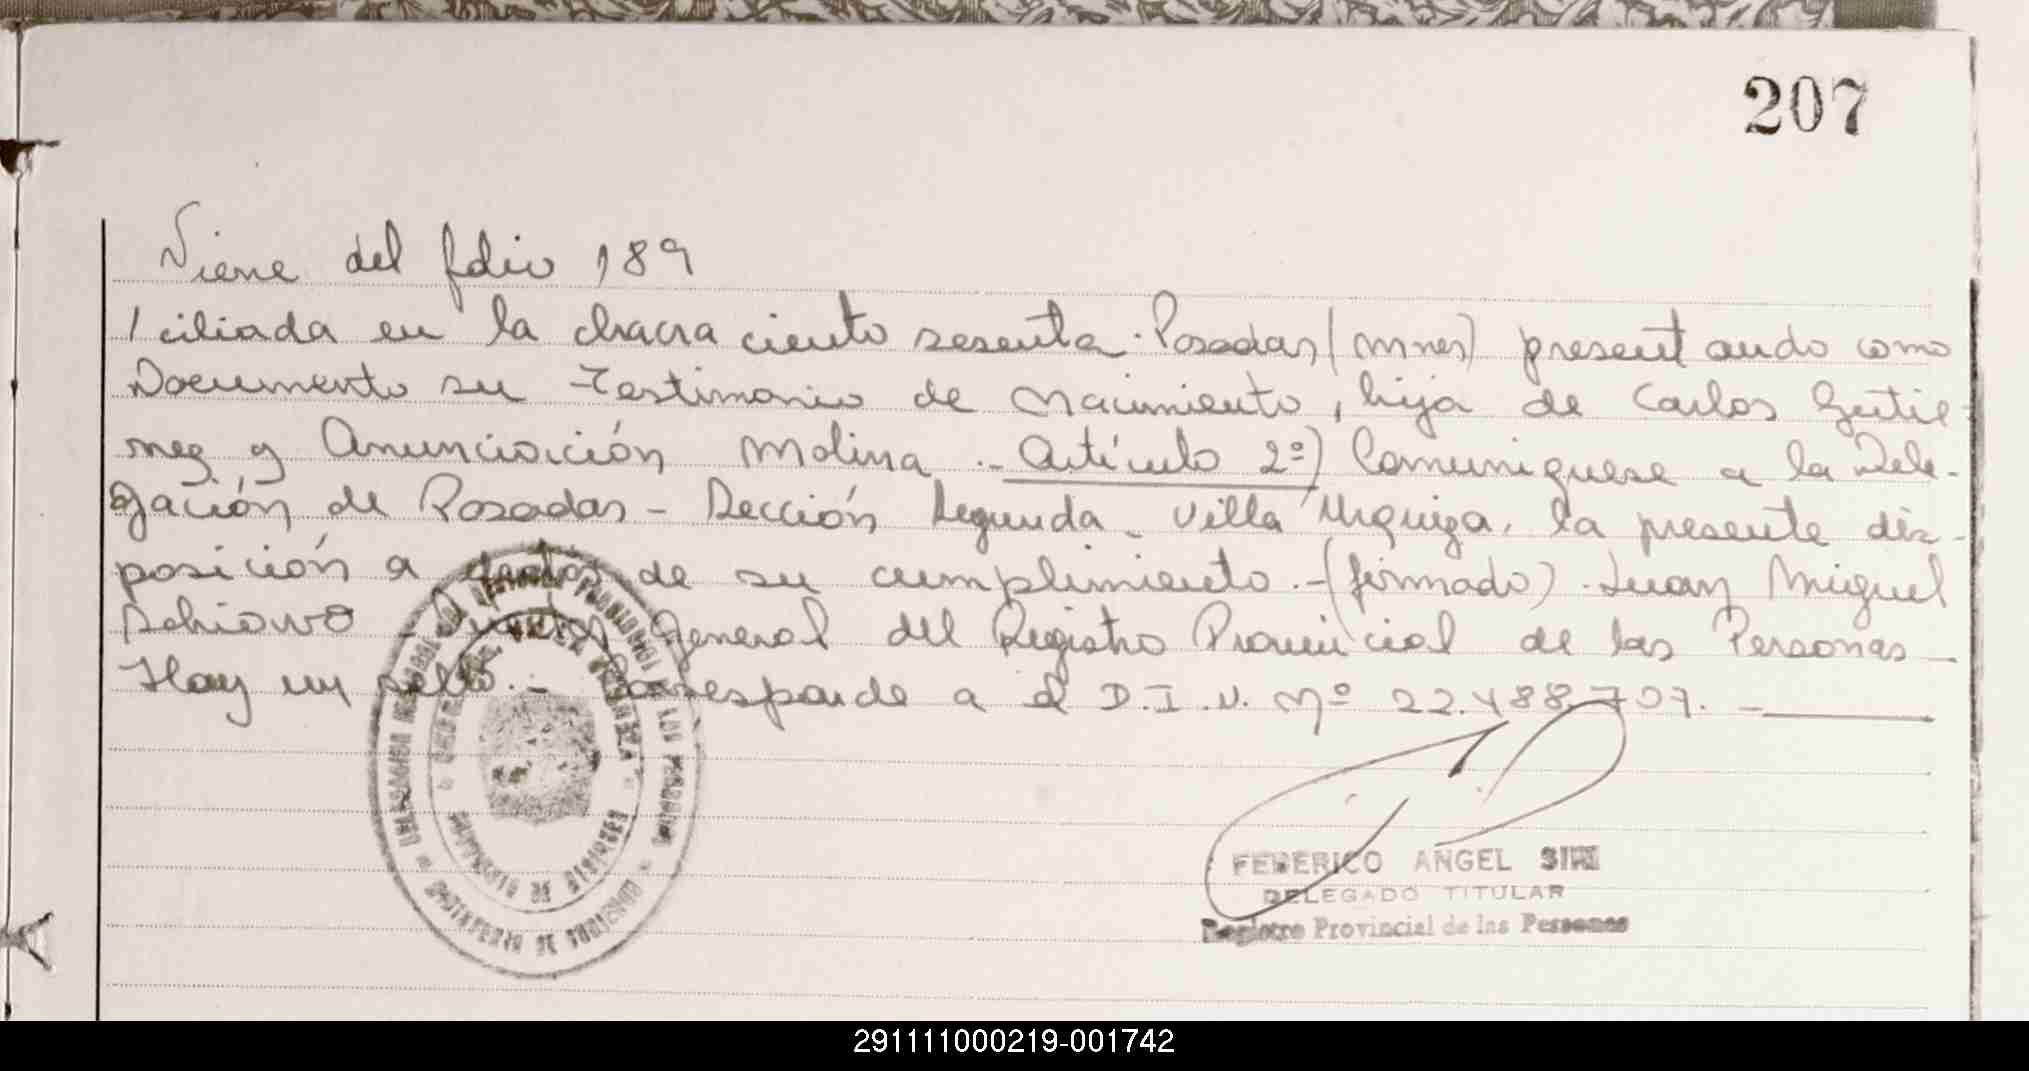 207
Viene del folio 189
/ciliada en la chacra ciento sesenta. Posadas (Mnes) presentando como
Documento su Testimonio de Nacimiento, hija de Carlos Gutie-
rrez y Anunciación Molina.- Artículo 2º) Comuniquese a la Dele-
gación de Posadas - Sección Segunda - Villa Urquiza, la presente dis-
posición a efectos de su cumplimiento.- (firmado). Juan Miguel
Schiavo General del Registro Provincial de las Personas
Hay un sello.- Corresponde a el D.I.N. Nº 22.488.707. -
FEDERICO ANGEL SIRI
DELEGADO TITULAR
Registro Provincial de las Personas
291111000219-001742